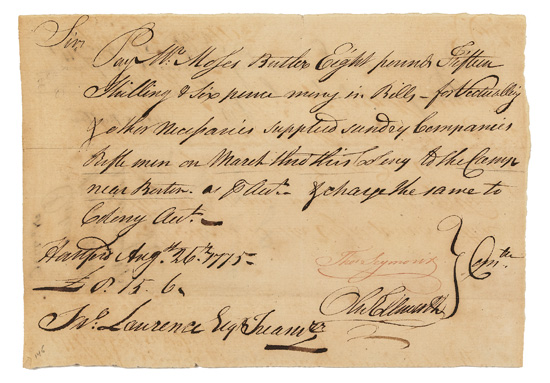 Sir
Pay Mr. Moses Butler Eight pounds Fifteen
Shilling & Six pence mony in Bills – for Victualling
& other Necessaries supplied sundry Companies
Rifle men on March thro this Colony to the Camp
near Boston. as ⅌ Acct. & charge the same to
Colony Acct.
Hartford Augst. 26th. 1775 –
£ 8. 15. 6.
Thos Seymour
Olr Ellsworth
} Comtte.
Jno. Lawrence Esqr Treasurer
146